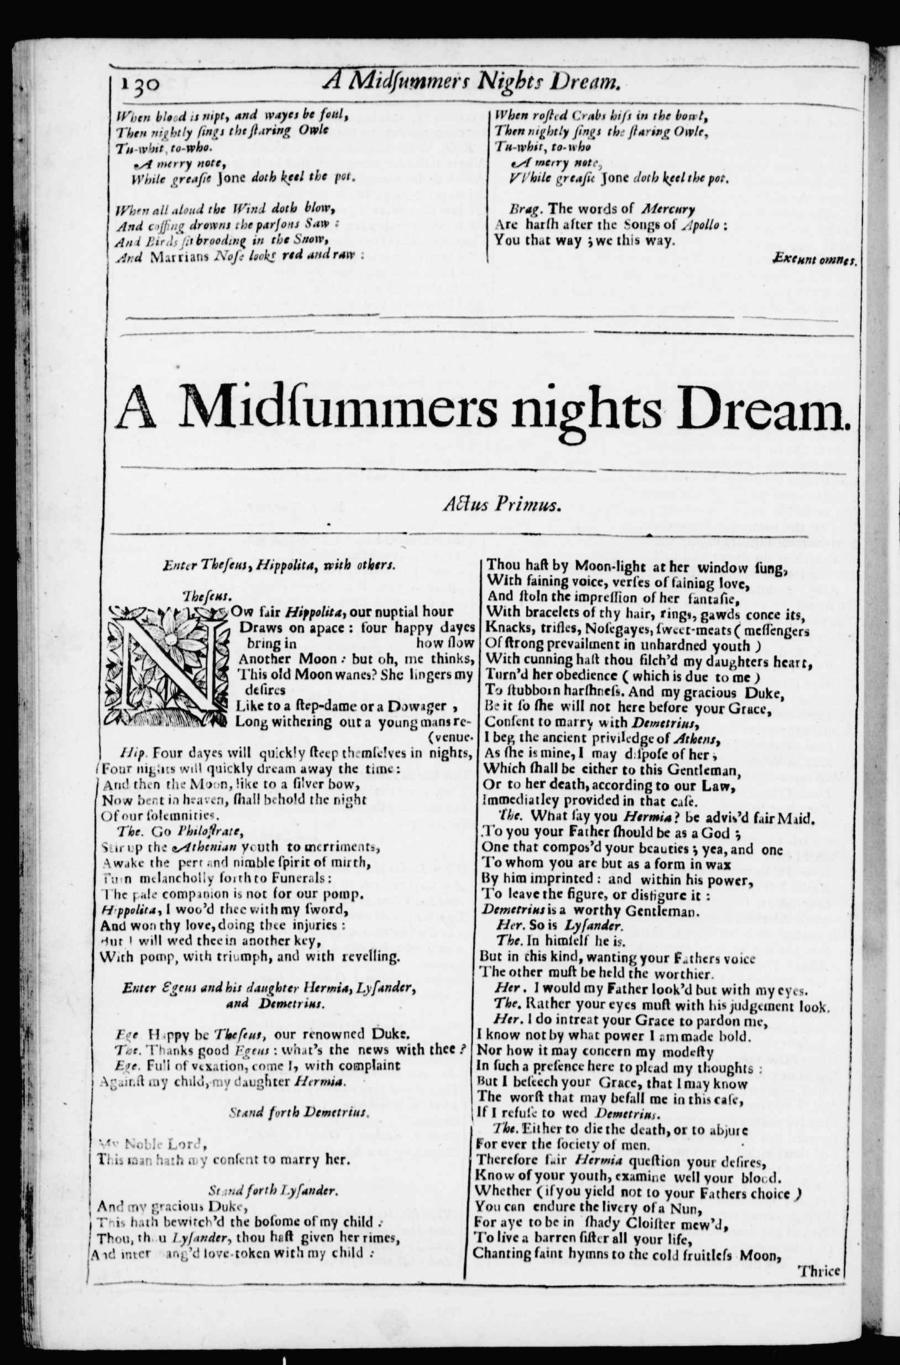 130
A Midſummers Nights Dream.
When blood is nipt, and wayes be foul,
Then nightly ſings the ſtaring Owle
Tu-whit, to-who.
A merry note,
While greaſie Jone doth keel the pot.
When all aloud the Wind doth blow,
And coſſing drowns the parſons Saw :
And Birds ſit brooding in the Snow,
And Marrians Noſe looks red and raw :
When roſted Crabs hiſs in the bowl,
Then nightly ſings the ſtaring Owle,
Tu-whit, to-who
A merry note,
VVhile greaſie Jone doth keel the pot.
Brag. The words of Mercury
Are harſh after the Songs of Apollo :
You that way ; we this way.
Exeunt omnes.
A Midſummers nights Dream.
Actus Primus.
Enter Theſeus, Hippolita, with others.
Theſeus.
NOw fair Hippolita, our nuptial hour
Draws on apace : four happy dayes
bring in how ſlow
Another Moon : but oh, me thinks,
This old Moon wanes? She lingers my
deſires
Like to a ſtep-dame or a Dowager ,
Long withering out a young mans re-
(venue.
Hip. Four dayes will quickly ſteep themſelves in nights,
Four nights will quickly dream away the time :
And then the Moon, like to a ſilver bow,
Now bent in heaven, ſhall behold the night
Of our ſolemnities.
The. Go Philoſtrate,
Stir up the Athenian youth to merriments,
Awake the pert and nimble ſpirit of mirth,
Turn melancholly forth to Funerals :
The pale companion is not for our pomp.
Hippolita, I woo'd thee with my ſword,
And won thy love, doing thee injuries :
But I will wed thee in another key,
With pomp, with triumph, and with revelling.
Enter Egeus and his daughter Hermia, Lyſander,
and Demetrius.
Ege Happy be Theſeus, our renowned Duke.
The. Thanks good Egeus : what's the news with thee ?
Ege. Full of vexation, come I, with complaint
Againſt my child, my daughter Hermia.
Stand forth Demetrius.
My Noble Lord,
This man hath my conſent to marry her.
Stand forth Lyſander.
And my gracious Duke,
This hath bewitch'd the boſome of my child :
Thou, thou Lyſander, thou haſt given her rimes,
And inter ang'd love-token with my child :
Thou haſt by Moon-light at her window ſung,
With faining voice, verſes of faining love,
And ſtoln the impreſſion of her fantaſie,
With bracelets of thy hair, rings, gawds conce its,
Knacks, trifles, Noſegayes, ſweet-meats ( meſſengers
Of ſtrong prevailment in unhardned youth )
With cunning haſt thou filch'd my daughters heart,
Turn'd her obedience ( which is due to me )
To ſtubborn harſhneſs. And my gracious Duke,
Be it ſo ſhe will not here before your Grace,
Conſent to marry with Demetrius,
I beg the ancient priviledge of Athens,
As ſhe is mine, I may diſpoſe of her ;
Which ſhall be either to this Gentleman,
Or to her death, according to our Law,
Immediatley provided in that caſe.
The. What ſay you Hermia ? be advis'd fair Maid.
To you your Father ſhould be as a God ;
One that compos'd your beauties ; yea, and one
To whom you are but as a form in wax
By him imprinted : and within his power,
To leave the figure, or disfigure it :
Demetrius is a worthy Gentleman.
Her. So is Lyſander.
The. In himſelf he is.
But in this kind, wanting your Fathers voice
The other muſt be held the worthier.
Her. I would my Father look'd but with my eyes.
The. Rather your eyes muſt with his judgement look.
Her. I do intreat your Grace to pardon me,
I know not by what power I am made bold.
Nor how it may concern my modeſty
In ſuch a preſence here to plead my thoughts :
But I beſeech your Grace, that I may know
The worſt that may befall me in this caſe,
If I refuſe to wed Demetrius.
The. Either to die the death, or to abjure
For ever the ſociety of men.
Therefore fair Hermia queſtion your deſires,
Know of your youth, examine well your blood.
Whether ( if you yield not to your Fathers choice )
You can endure the livery of a Nun,
For aye to be in ſhady Cloiſter mew'd,
To live a barren ſiſter all your life,
Chanting faint hymns to the cold fruitleſs Moon,
Thrice